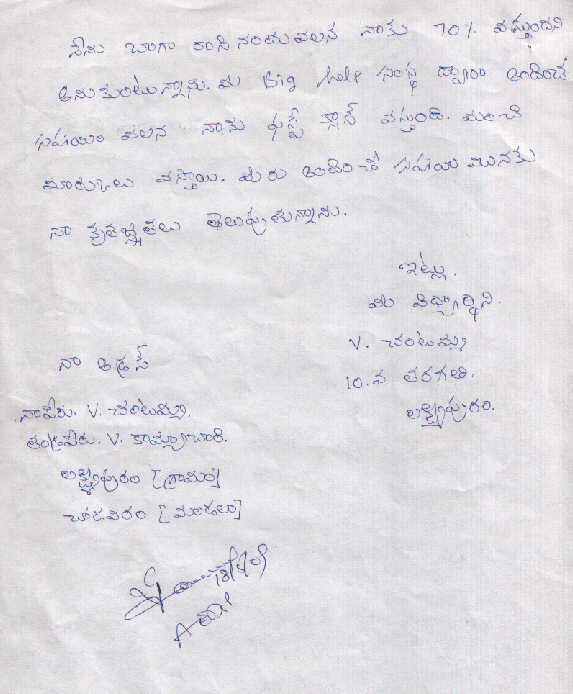 నేను బాగా రాసినందువలన నాకు 70% వస్తుందని
అనుకుంటున్నాను. మీ Big help సంస్థ ద్వారా అందించే
సహాయం వలన నాకు ఫస్ట్ క్లాస్ వస్తుంది. మంచి
మార్కులు వస్తాయి. మీరు అందించే సహాయమునకు
నా కృతజ్ఞతలు తెలుపుతున్నాను.
ఇట్లు.
మీ విద్యార్థిని.
V.
10.వ తరగతి.
లక్ష్మీపురం.
నా అడ్రస్
నాపేరు. V.
తండ్రిపేరు. V.
లక్ష్మీపురం [గ్రామం]
[మండలం]